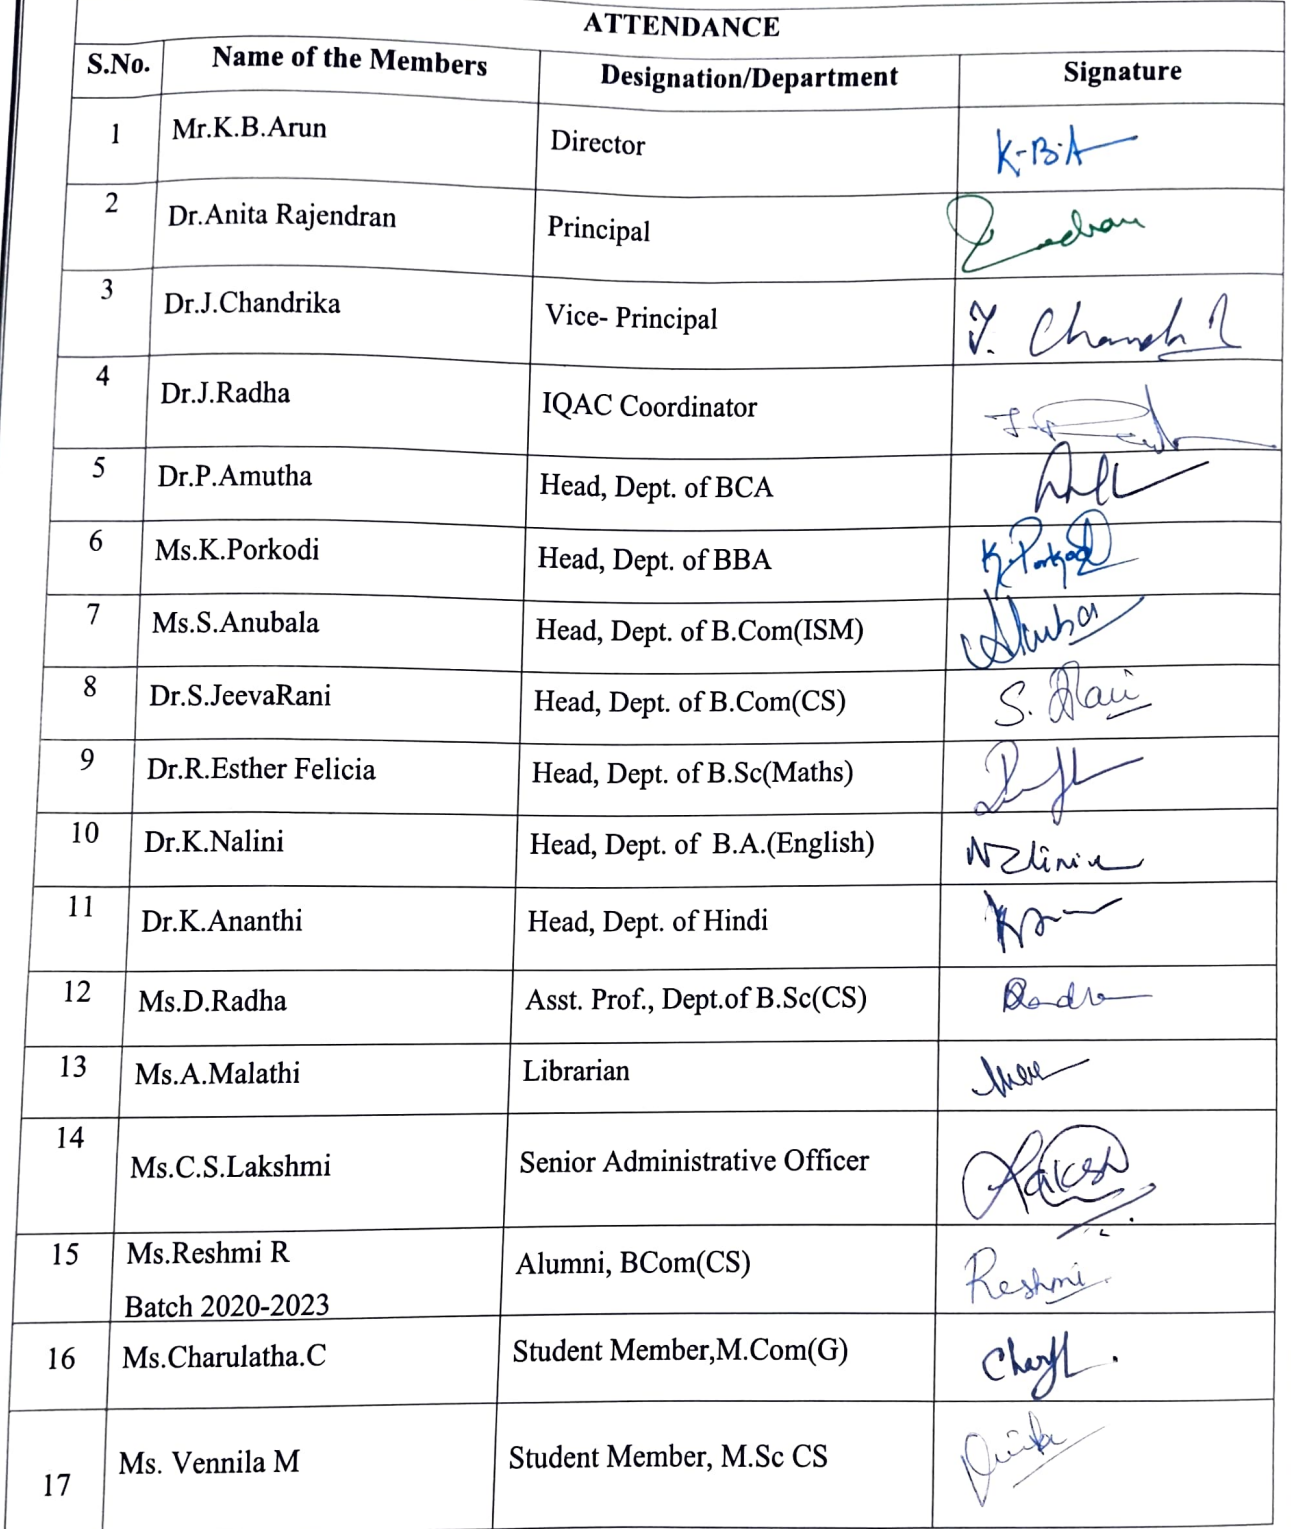 ATTENDANCE
S.No. Name of the Members Designation/Department Signature
1 Mr.K.B.Arun Director K-B-A
2 Dr.Anita Rajendran Principal
3 Dr.J.Chandrika Vice- Principal
4 Dr.J.Radha IQAC Coordinator
5 Dr.P.Amutha Head, Dept. of BCA
6 Ms.K.Porkodi Head, Dept. of BBA K.Porkodi
7 Ms.S.Anubala Head, Dept. of B.Com(ISM)
8 Dr.S.JeevaRani Head, Dept. of B.Com(CS)
9 Dr.R.Esther Felicia Head, Dept. of B.Sc(Maths)
10 Dr.K.Nalini Head, Dept. of B.A.(English)
11 Dr.K.Ananthi Head, Dept. of Hindi
12 Ms.D.Radha Asst. Prof., Dept.of B.Sc(CS)
13 Ms.A.Malathi Librarian
14 Ms.C.S.Lakshmi Senior Administrative Officer
15 Ms.Reshmi R Alumni, BCom(CS) Reshmi
Batch 2020-2023
16 Ms.Charulatha.C Student Member,M.Com(G)
17 Ms. Vennila M Student Member, M.Sc CS